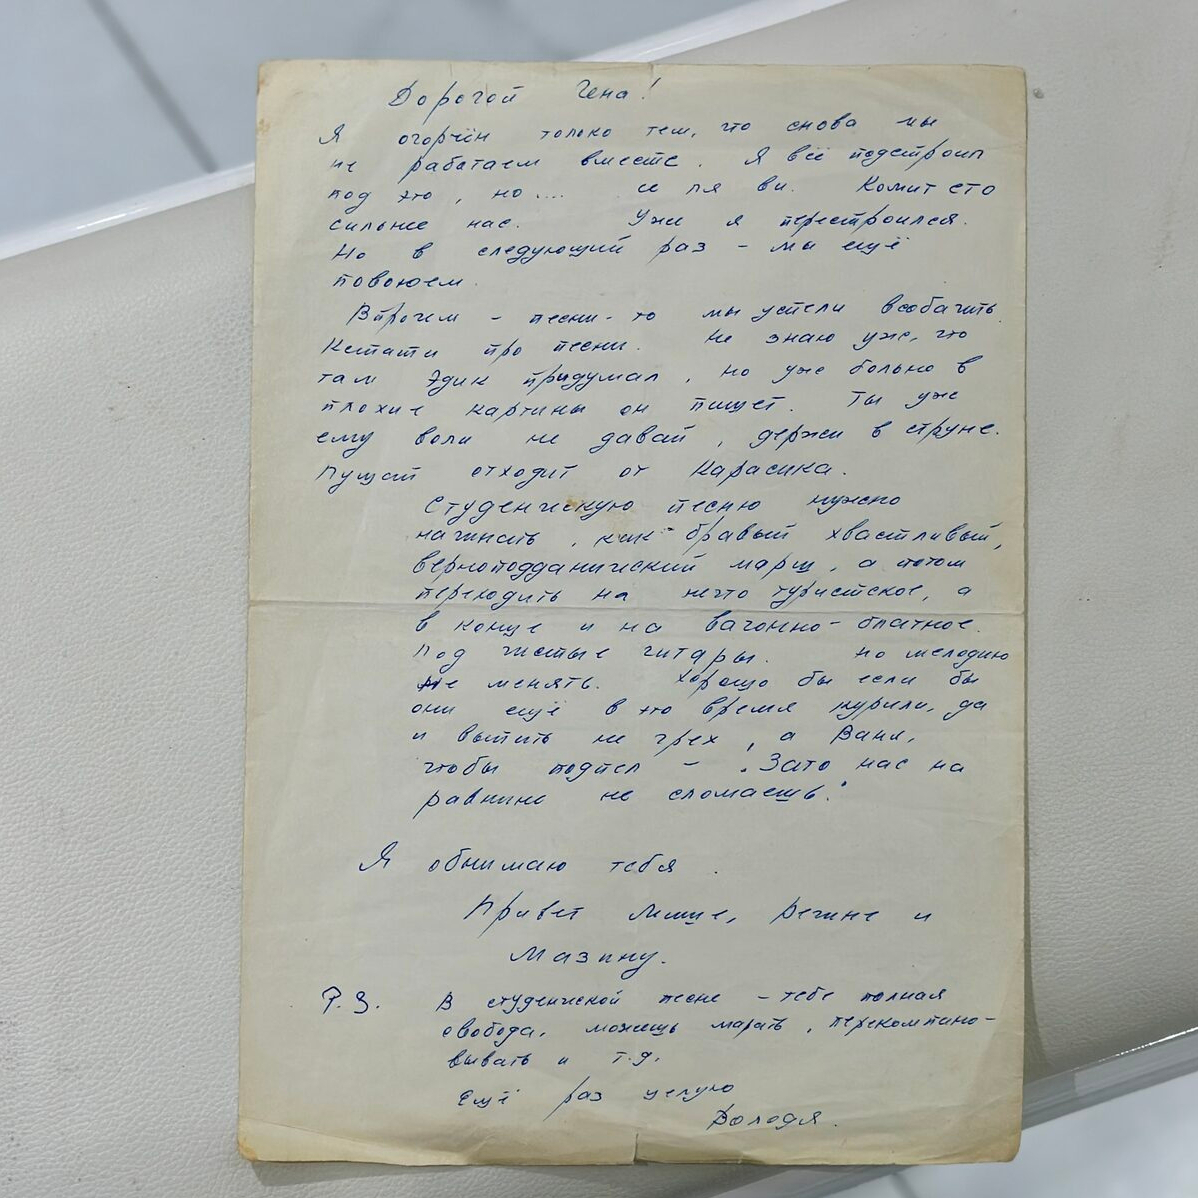 Дорогой Гена!
Я огорчён только тем, что снова мы
не работаем вместе. Я всё подстроил
под это, но.... се ля ви. Комитето
сильнее нас. Уже я перестроился.
Но в следующий раз - мы ещё
повоюем.
Впрочем - песни-то мы успели всобачить.
Кстати про песни. Не знаю уже, что
там Эдик придумал, но уже больно в
плохие картины он пишет. Ты уже
ему воли не давай, держи в струне.
Пущай отходит от Карасика.
Студенческую песню нужно
начинать, как бравый хвастливый,
верноподданический марш, а потом
переходить на нечто туристское, а
в конце и на вагонно-блатное.
Под чистые гитары. Но мелодию
не менять. Хорошо бы если бы
они ещё в это время курили, да
и выпить не грех, а Ваня,
чтобы подпел - "Зато нас на
равнине не сломаешь."
Я обнимаю тебя.
Привет Мише, Регине и
Мазину.
P.S. В студенческой песне - тебе полная
свобода, можешь марать, перекомпано-
вывать и т.д.
Ещё раз целую
Володя.